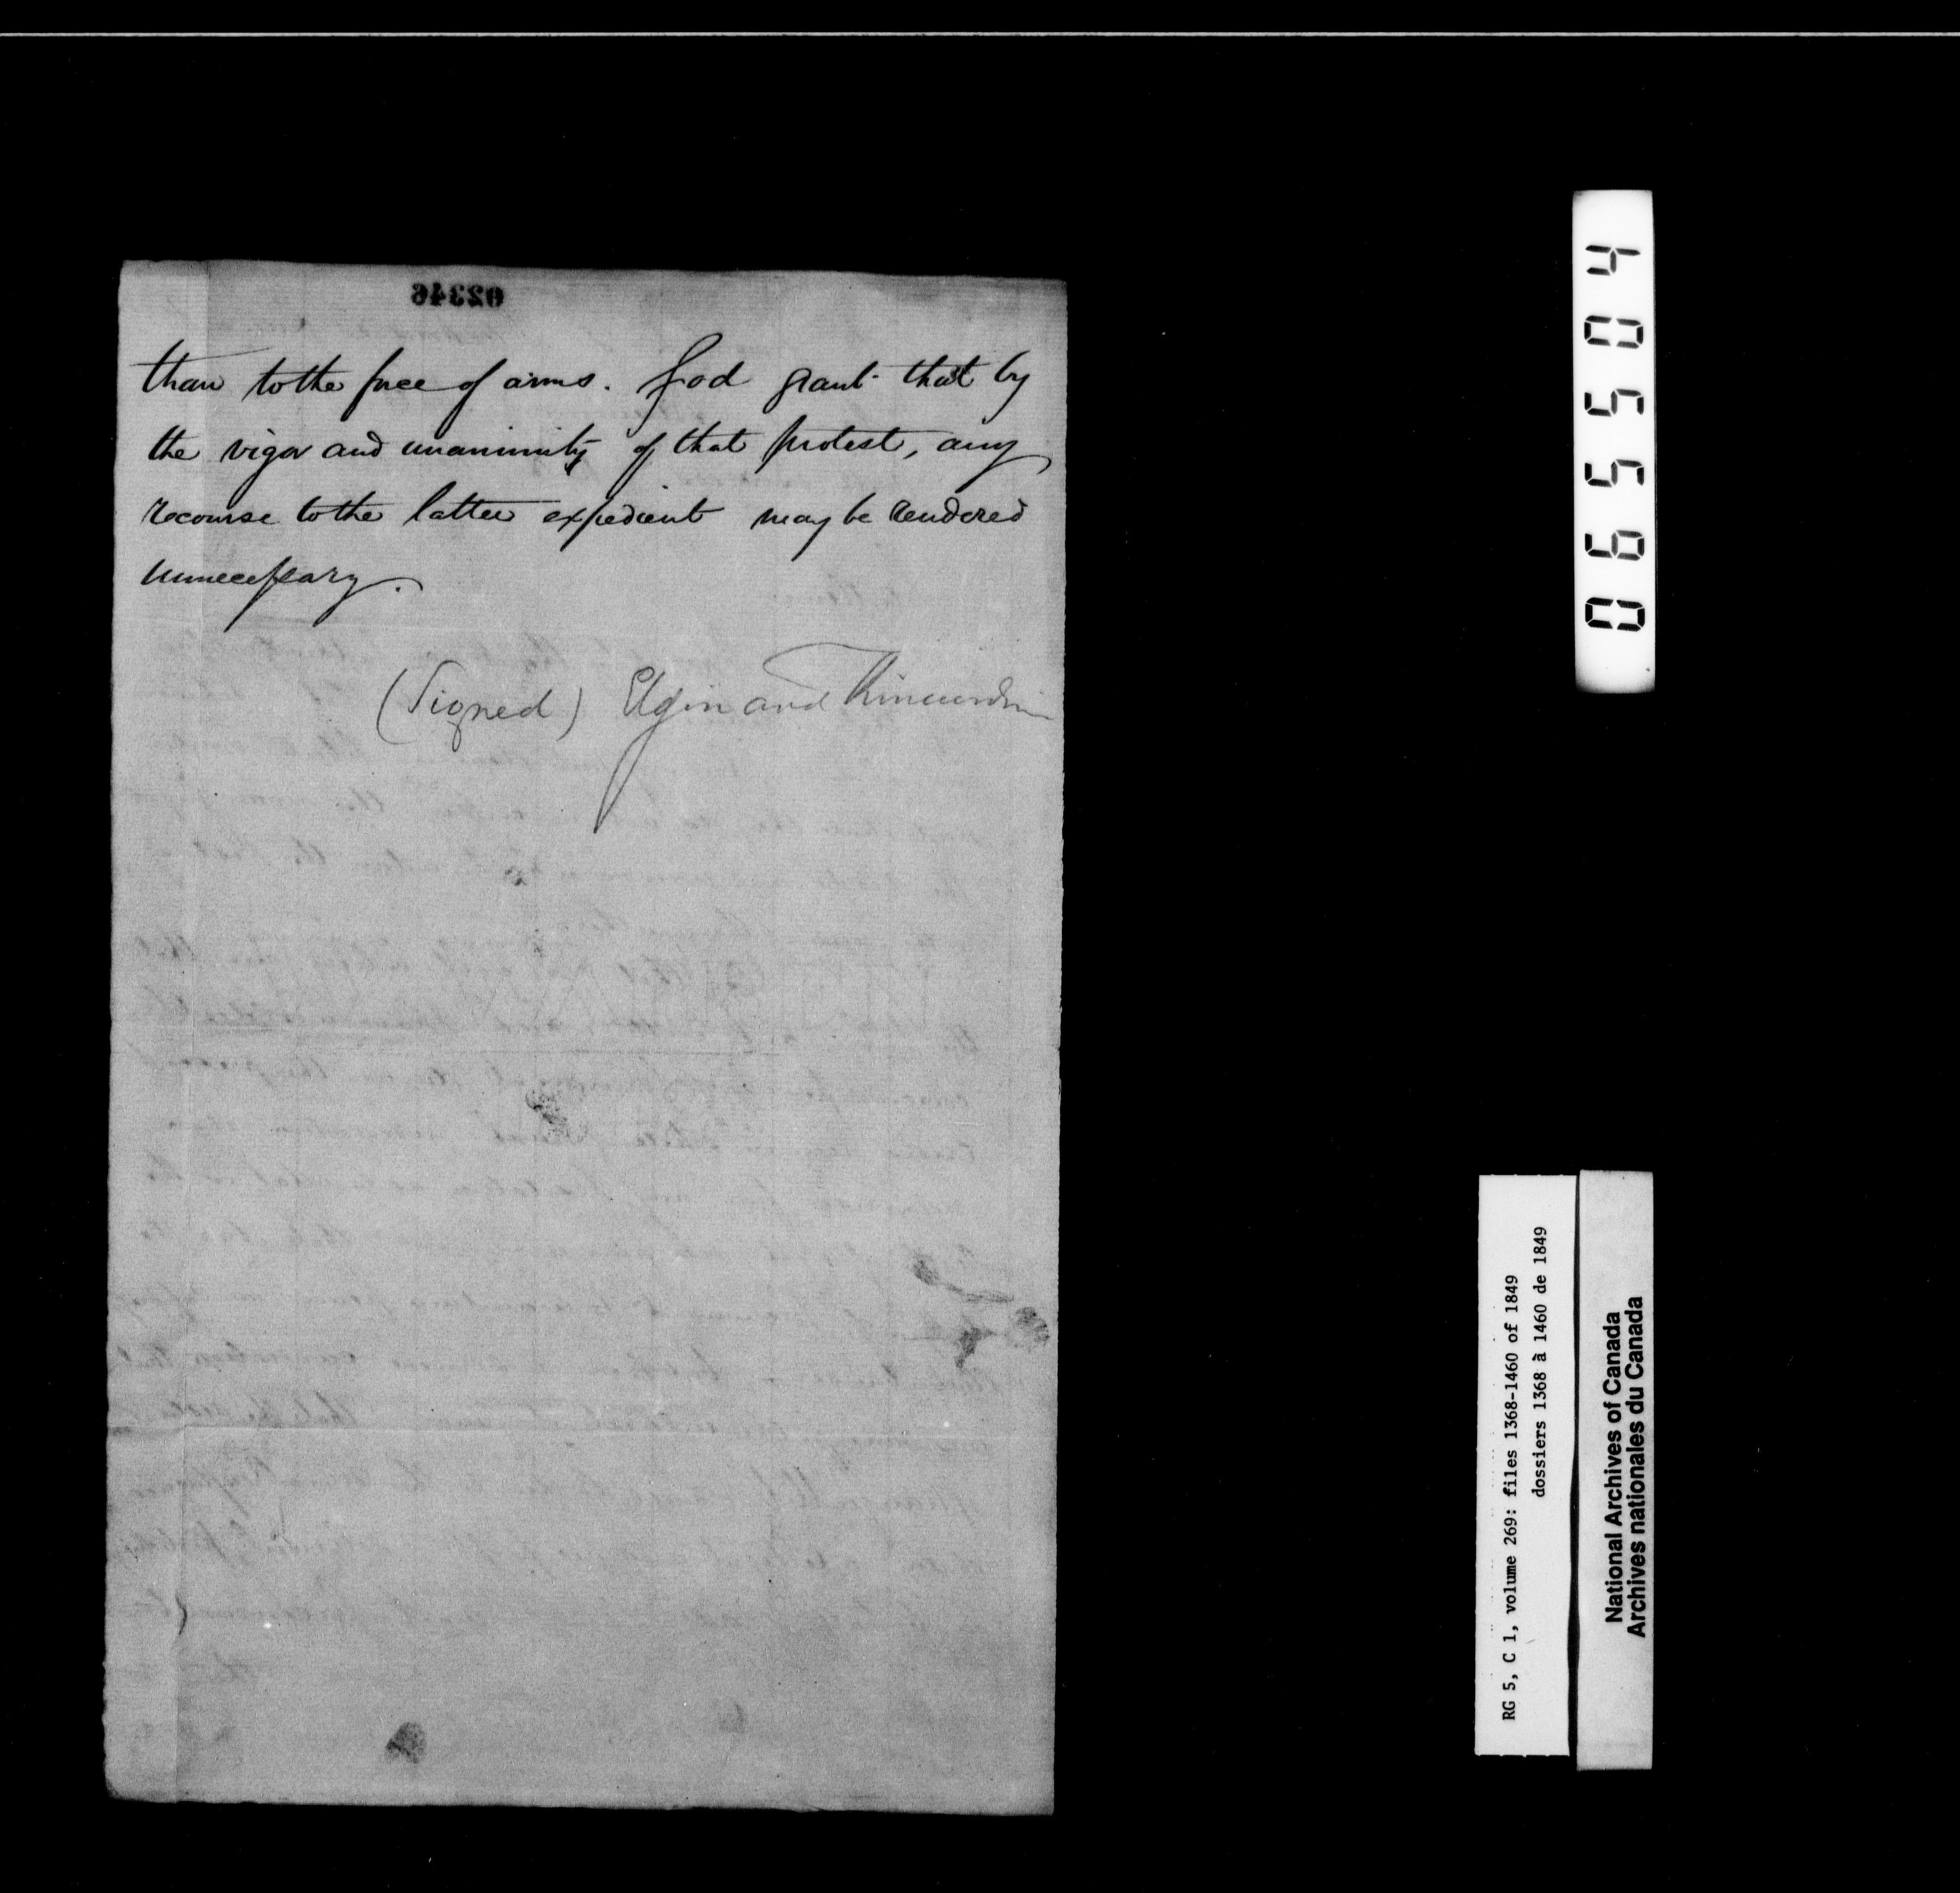 02346
than to the force of arms. God grant that by
the vigor and unanimity of that protest, any
recourse to the latter expedient may be rendered
unnecessary.
(Signed) Elgin and Kincardine
065504
RG 5, C 1, volume 269: files 1368-1460 of 1849
dossiers 1368 à 1460 de 1849
National Archives of Canada
Archives nationales du Canada